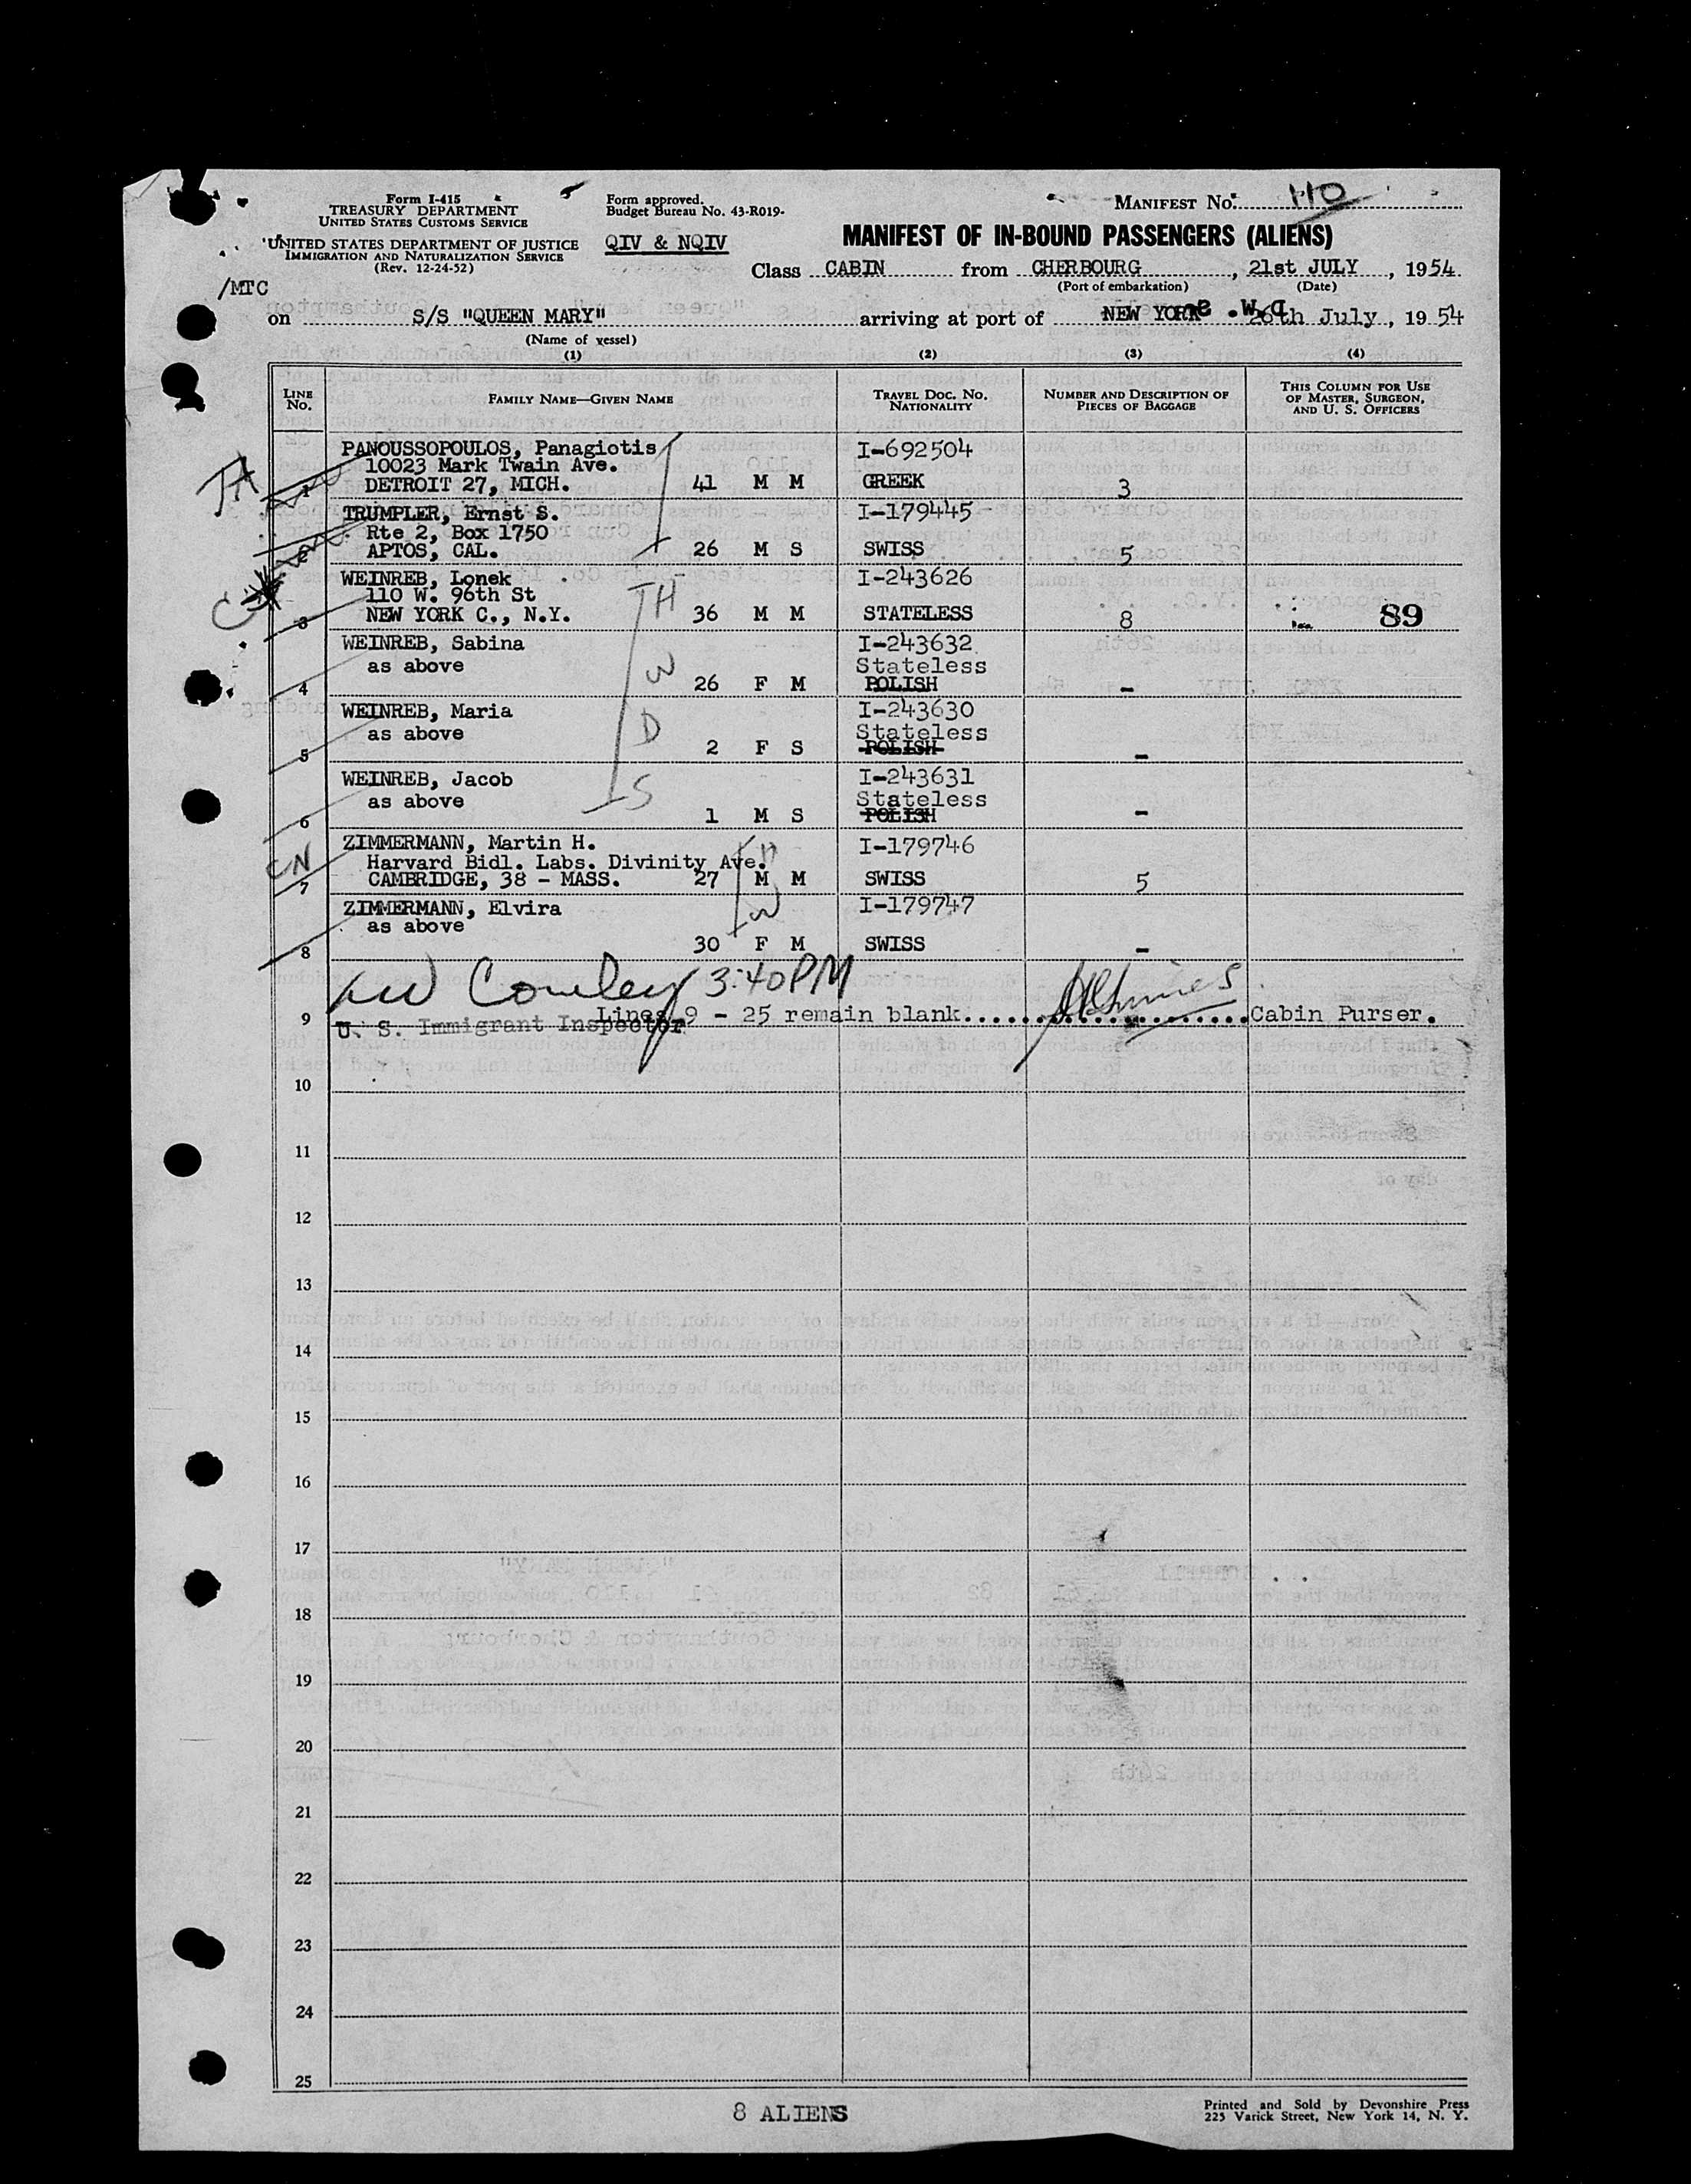 Form I-415
TREASURY DEPARTMENT
UNITED STATES CUSTOMS SERVICE
UNITED STATES DEPARTMENT OF JUSTICE
IMMIGRATION AND NATURALIZATION SERVICE
(Rev. 12-24-52)
Form approved.
Budget Bureau No. 43-R019-
QIV & NQIV
MANIFEST NO. 110
MANIFEST OF IN-BOUND PASSENGERS (ALIENS)
Class CABIN from CHERBOURG, 21st JULY, 1954
(Port of embarkation) (Date)
/MTC
on S/S "QUEEN MARY" arriving at port of NEW YORK 26th July, 1954
(Name of vessel)
(1) (2) (3) (4)
LINE NO. FAMILY NAME—GIVEN NAME TRAVEL DOC. NO. NATIONALITY NUMBER AND DESCRIPTION OF PIECES OF BAGGAGE THIS COLUMN FOR USE OF MASTER, SURGEON, AND U. S. OFFICERS
PANOUSSOPOULOS, Panagiotis I-692504
10023 Mark Twain Ave.
1 DETROIT 27, MICH. 41 M M GREEK 3
TRUMPLER, Ernst S. I-179445
Rte 2, Box 1750
2 APTOS, CAL. 26 M S SWISS 5
WEINREB, Lonek I-243626
110 W. 96th St
3 NEW YORK C., N.Y. 36 M M STATELESS 8 89
WEINREB, Sabina I-243632
as above Stateless
4 26 F M POLISH -
WEINREB, Maria I-243630
as above Stateless
5 2 F S POLISH -
WEINREB, Jacob I-243631
as above Stateless
6 1 M S POLISH -
ZIMMERMANN, Martin H. I-179746
Harvard Bidl. Labs. Divinity Ave.
7 CAMBRIDGE, 38 - MASS. 27 M M SWISS 5
ZIMMERMANN, Elvira I-179747
as above
8 30 F M SWISS -
TA
CN
TH
W
D
S
H
W
Cowley 3:40PM
9 Lines 9 - 25 remain blank. Cabin Purser.
U. S. Immigrant Inspector
10
11
12
13
14
15
16
17
18
19
20
21
22
23
24
25
8 ALIENS
Printed and Sold by Devonshire Press
225 Varick Street, New York 14, N. Y.